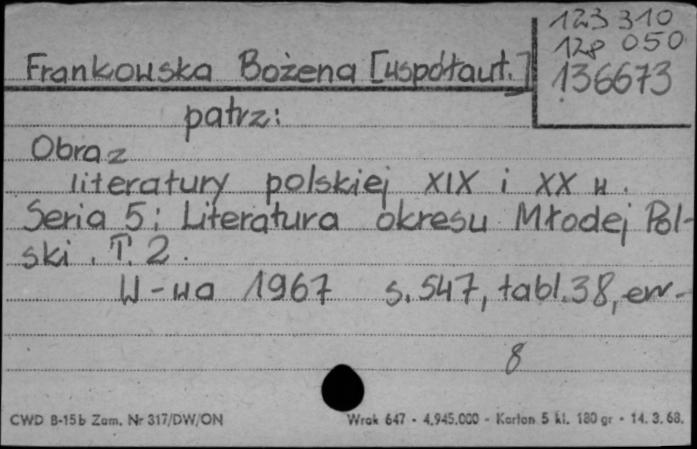 123 310
128 050
136673
Frankowska Bożena [współaut.]
patrz:
Obraz
literatury polskiej XIX i XX w.
Seria 5: Literatura okresu Młodej Pol-
ski. T. 2.
W-wa 1967 s. 547, tabl. 38, err-
8
CWD B-15b Zam. Nr 317/DW/ON Wrak 647 - 4.945.000 - Karton 5 kl. 180 gr - 14. 3. 68.